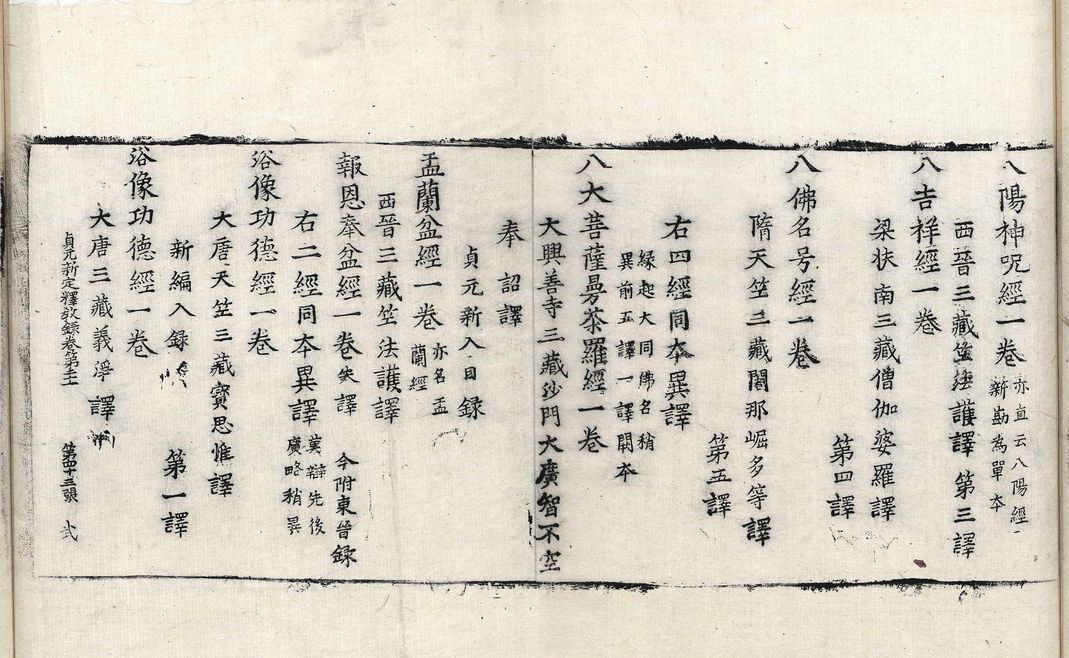 八陽神呪經一卷亦直云八陽經
新勘為單本
西晉三藏竺法護譯 第三譯
八吉祥經一卷
梁扶南三藏僧伽婆羅譯
第四譯
八佛名号經一卷
隋天竺三藏闍那崛多等譯
第五譯
右四經同本異譯
緣起大同佛名稍
異前五譯一譯闕本
八大菩薩曼茶羅經一卷
大興善寺三藏沙門大廣智不空
奉 詔譯
貞元新入目録
盂蘭盆經一卷亦名盂
蘭經
西晉三藏竺法護譯
報恩奉盆經一卷失譯 今附東晉録
右二經同本異譯莫辯先後
廣略稍異
浴像功德經一卷
大唐天竺三藏寳思惟譯
新編入録 第一譯
浴像功德經一卷
大唐三藏義淨譯
貞元新定釋教録卷第 第四十三張 弍